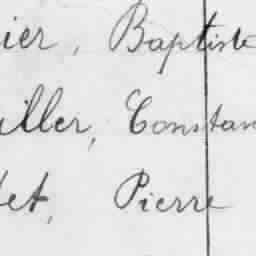 ier, Baptiste
iller, Constan
et, Pierre